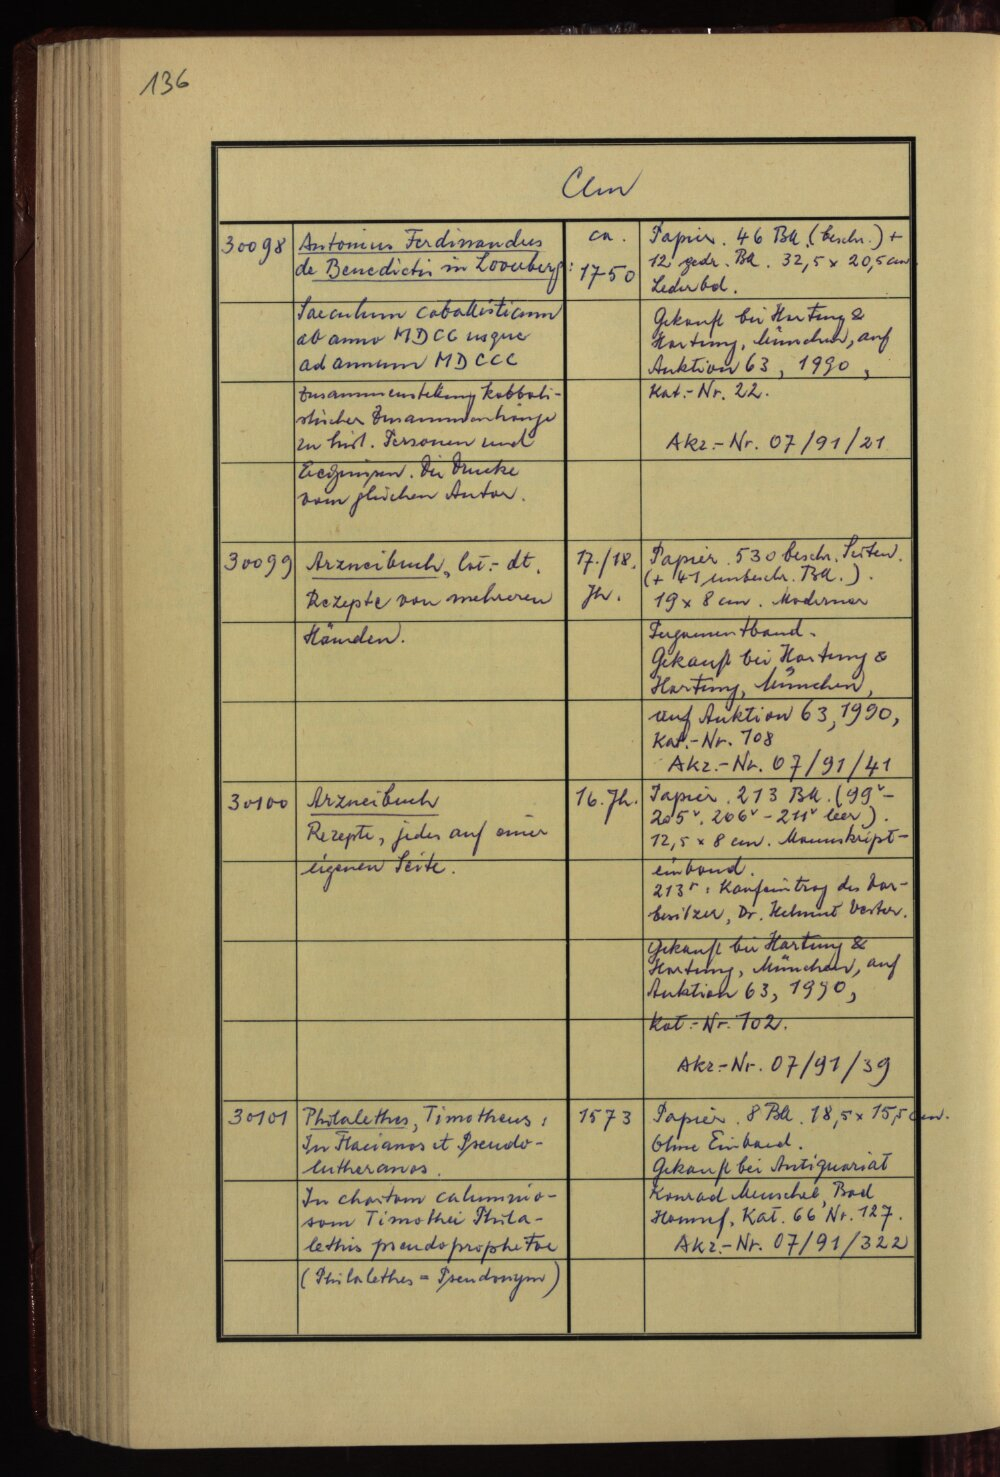 136
Clm
30098
Antonius Ferdinandus
de Benedictis in Loovenberg:
Saeculum cabbalisticum
ab anno MDCC usque
ad annum MDCCC
Zusammenstellung kabbali-
stischer Zusammenhänge
zu hist. Personen und
Ereignissen. Die Drucke
vom gleichen Autor.
ca.
1750
Papier. 46 Bll. (beschr.) +
12 gedr. Bll. 32,5 x 20,5 cm.
Lederbd.
Gekauft bei Hartung &
Hartung, München, auf
Auktion 63, 1990,
Kat.-Nr. 22.
Akz.-Nr. 07/91/21
30099
Arzneibuch, lat.-dt.
Rezepte von mehreren
Händen.
17./18.
Jh.
Papier. 530 beschr. Seiten.
(+ 41 unbeschr. Bll.).
19 x 8 cm. Moderner
Pergamentband.
Gekauft bei Hartung &
Hartung, München,
auf Auktion 63, 1990,
Kat.-Nr. 108
Akz.-Nr. 07/91/41
30100
Arzneibuch
Rezepte, jedes auf einer
eigenen Seite.
16. Jh.
Papier. 213 Bll. (99v-
205v, 206v - 211v leer).
12,5 x 8 cm. Manuskript-
einband.
213r: Kaufeintrag des Vor-
besitzer, Dr. Helmut Vester.
Gekauft bei Hartung &
Hartung, München, auf
Auktion 63, 1990,
Kat.-Nr. 102.
Akz.-Nr. 07/91/39
30101
Philalethes, Timotheus:
In Flacianos et Pseudo-
lutheranos.
In chartam calumnio-
sam Timothei Phila-
lethis pseudoprophetae
(Philalethes = Pseudonym)
1573
Papier. 8 Bll. 18,5 x 15,5 cm.
Ohne Einband.
Gekauft bei Antiquariat
Konrad Meuschel, Bad
Honnef, Kat. 66 Nr. 127.
Akz.-Nr. 07/91/322